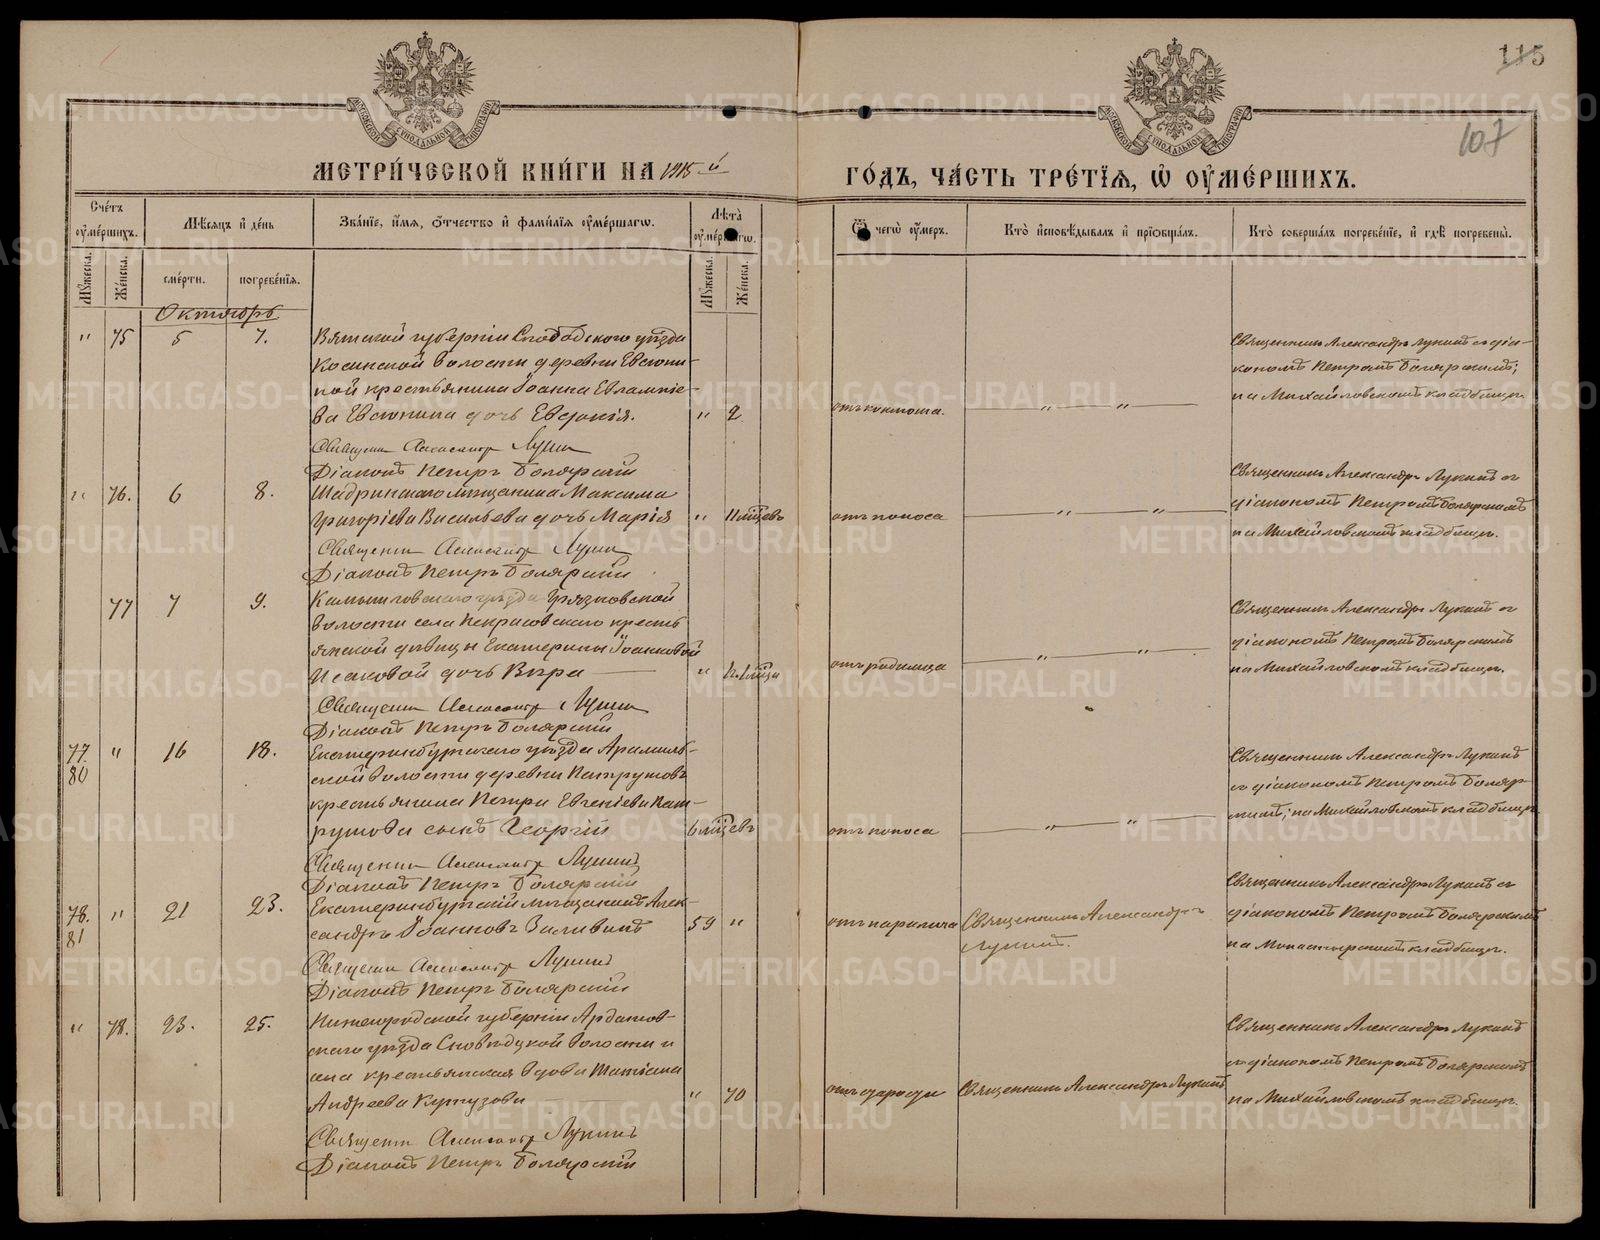 115
107
МЕТРИ́ЧЕСКОЙ КНИ́ГИ НА 1915-й ГО́ДЪ, ЧА́СТЬ ТРЕ́ТІѦ, Ѿ ОУМЕ́РШИХЪ.
Счетъ оумершихъ.
Мѣсяцъ и день
Званіе, имя, отчество и фамилія оумершагѡ.
Лѣта оумершагѡ.
Ѿ чегѡ оумеръ.
Кто исповѣдывалъ и пріобщалъ.
Кто совершалъ погребеніе, и гдѣ погребены.
Мужеска.
Женска.
смерти.
погребенія.
Мужеска.
Женска.
Октябрь
" 75 5 7.
Вятской губерніи Слободского уѣзда
Косинской волости деревни Евсюни-
ной крестьянина Іоанна Евлампіе-
ва Евсюнина дочь Евдокія. " 2
отъ коклюша.
Священникъ Александръ Лукинъ съ діа-
кономъ Петромъ Боярскимъ;
на Михайловскомъ кладбищѣ.
Священникъ Александръ Лукинъ
Діаконъ Петръ Боярскій
" 76. 6 8.
Шадринскаго мѣщанина Максима
Григоріева Васильева дочь Марія " 11 мѣсяцевъ
отъ поноса
Священникъ Александръ Лукинъ съ
діакономъ Петромъ Боярскимъ
на Михайловскомъ кладбищѣ.
Священникъ Александръ Лукинъ
Діаконъ Петръ Боярскій
77 7 9.
Камышловскаго уѣзда Грязновской
волости села Некрасовскаго кресть-
янской дѣвицы Екатерины Іоанновой
Исаковой дочь Вѣра "
отъ родимца
Священникъ Александръ Лукинъ съ
діакономъ Петромъ Боярскимъ
на Михайловскомъ кладбищѣ.
Священникъ Александръ Лукинъ
Діаконъ Петръ Боярскій
77. " 16 18.
80
Екатеринбургскаго уѣзда Арамиль-
ской волости деревни Патрушевъ
крестьянина Петра Евгеніева Пат-
рушева сынъ Георгій 6 мѣсяцевъ
отъ поноса
Священникъ Александръ Лукинъ
съ діакономъ Петромъ Бояр-
скимъ; на Михайловскомъ кладбищѣ.
Священникъ Александръ Лукинъ
Діаконъ Петръ Боярскій
78. " 21 23.
81
Екатеринбургскій мѣщанинъ Алек-
сандръ Іоанновъ 59 "
отъ паралича
Священникъ Александръ
Лукинъ.
Священникъ Александръ Лукинъ съ
діакономъ Петромъ Боярскимъ
на Монастырскомъ кладбищѣ.
Священникъ Александръ Лукинъ
Діаконъ Петръ Боярскій
" 78. 23. 25.
Нижегородской губерніи Ардатов-
скаго уѣзда волости и
села крестьянская вдова Татіана
Андреева Кутузова " 70
отъ старости
Священникъ Александръ Лукинъ
Священникъ Александръ Лукинъ
съ діакономъ Петромъ Боярскимъ
на Михайловскомъ кладбищѣ.
Священникъ Александръ Лукинъ
Діаконъ Петръ Боярскій
METRIKI.GASO-URAL.RU